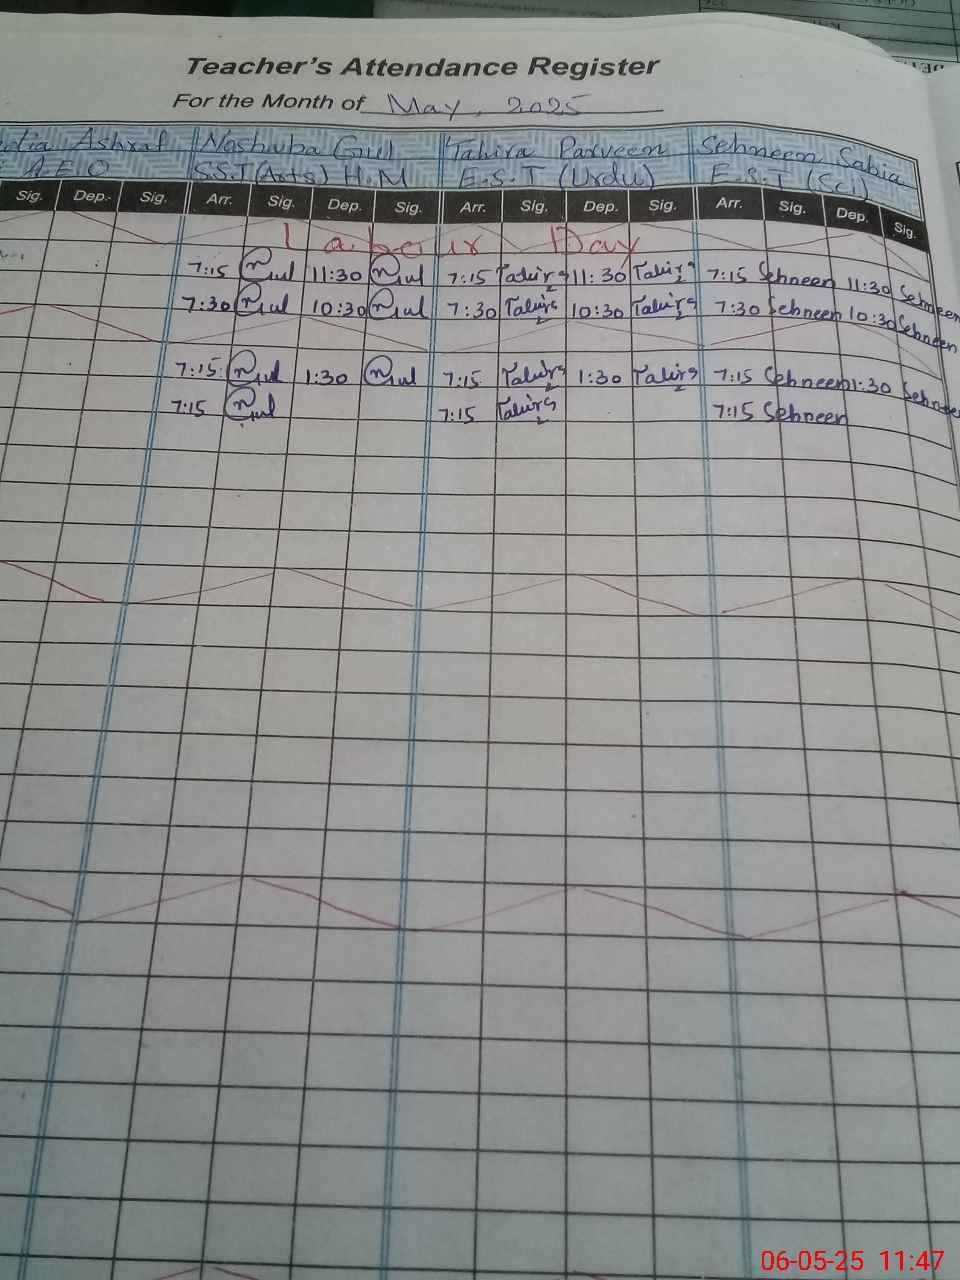 Teacher's Attendance Register
For the Month of May, 2025
Ashraf Noshuba Gul Tahira Parveen Sehneem Sabia
A E O S.S.T (Arts) H.M E.S.T (Urdu) E.S.T (Sci)
Sig. Dep. Sig. Arr. Sig. Dep. Sig. Arr. Sig. Dep. Sig. Arr. Sig. Dep. Sig.
Labour Day
7:15 Gul 11:30 Gul 7:15 Tahira 11:30 Tahira 7:15 Sehneen 11:30 Sehneen
7:30 Gul 10:30 Gul 7:30 Tahira 10:30 Tahira 7:30 Sehneen 10:30 Sehneen
7:15 Gul 1:30 Gul 7:15 Tahira 1:30 Tahira 7:15 Sehneen 1:30 Sehneen
7:15 Gul 7:15 Tahira 7:15 Sehneen
06-05-25 11:47